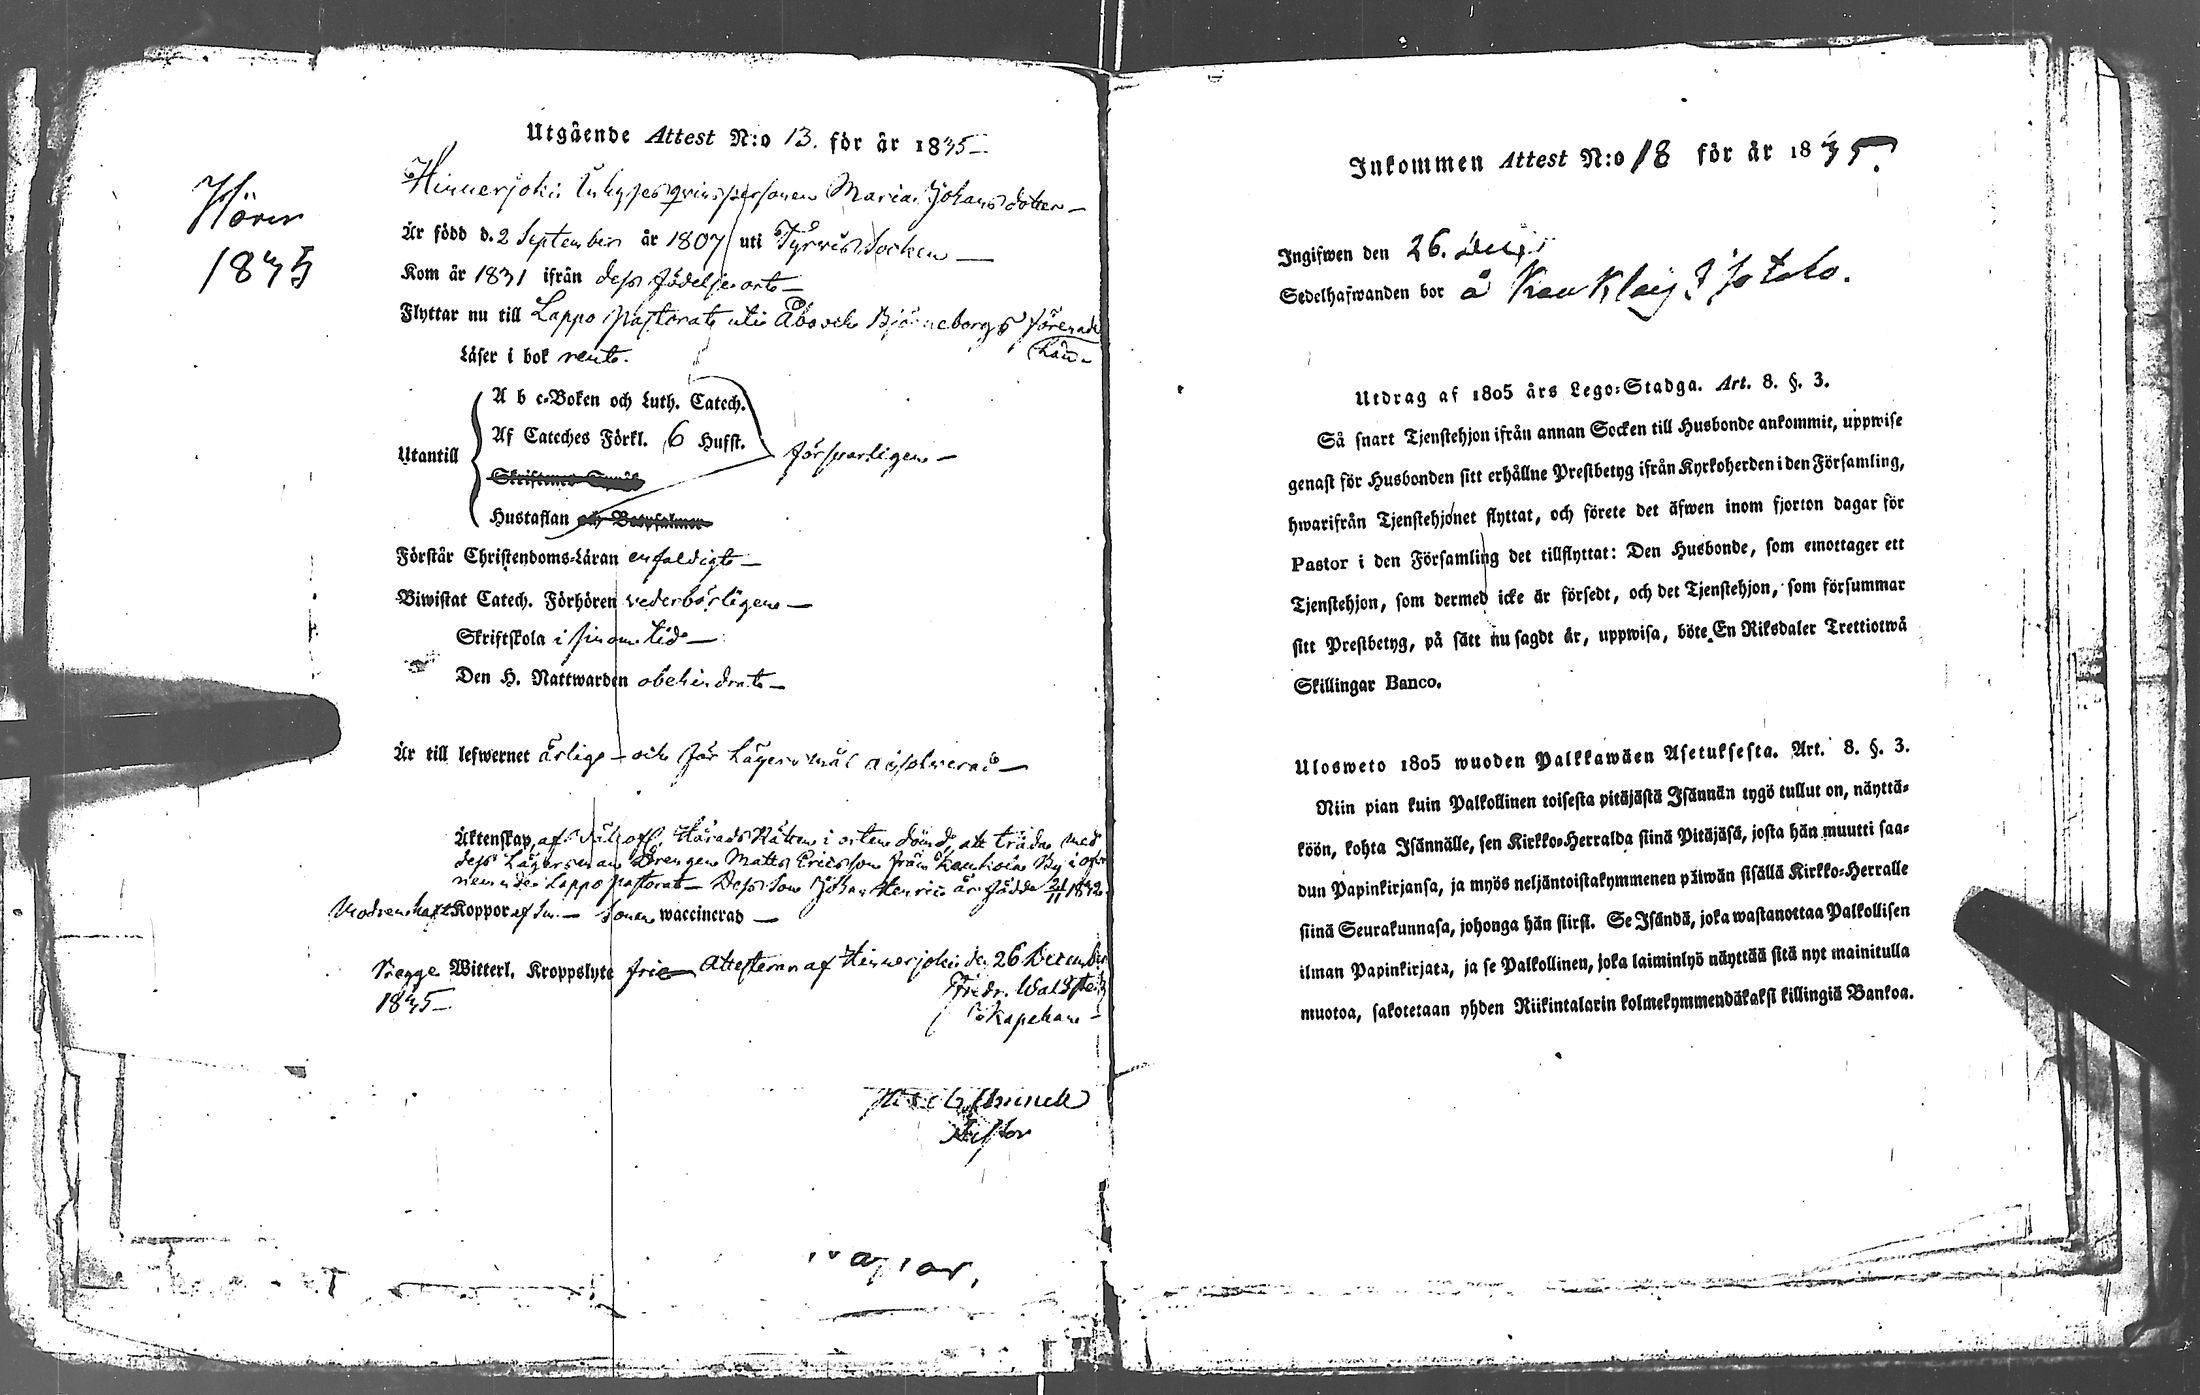 Utgående Attest N:o 13. för år 1835
Hinnerjoki Inhyses qvinspersonen Maria Johansdotter
Hörer
1835
Är född d. 2 September år 1807 uti Tyrvis Socken
Kom år 1831 ifrån dess födelseort
Flyttar nu till Lappo Pastorat uti Åbo och Björneborgs förenade
Län
Läser i bok rent.
Utantill
A b c-Boken och Luth. Catech.
Af Cateches Förkl. 6 Hufst.
Hustaflan och Botpsalmer
försvarligen
Förstår Christendoms-Läran enfaldigt
Biwistat Catech. Förhören vederbörligen
Skriftskola i sinom tid
Den H. Nattwarden obehindrat
Är till lefwernet ärlig och för Lägersmål absolverad
Äktenskap, af Härads Rätten i orten dömd, att träda med
dess Lägersman Drengen Matts Ericsson från By i
Lappo pastorat Dess Son Johan Henric är födde 2/11 1832.
Modren haft Koppor Sonen waccinerad
Bægge Witterl. Kroppslyte frie Attesterar af Hinnerjoki den 26 December
1835
Fridr. Waldstedt
Kapellan
Pastor
Inkommen Attest N:o 18 för år 1835.
Ingifwen den 26.
Sedelhafwanden bor å
Utdrag af 1805 års Lego-Stadga. Art. 8. §. 3.
Så snart Tjenstehjon ifrån annan Socken till Husbonde ankommit, uppwise
genast för Husbonden sitt erhållne Prestbetyg ifrån Kyrkoherden i den Församling,
hwarifrån Tjenstehjonet flyttat, och förete det äfwen inom fjorton dagar för
Pastor i den Församling det tillflyttat: Den Husbonde, som emottager ett
Tjenstehjon, som dermed icke är försedt, och det Tjenstehjon, som försummar
sitt Prestbetyg, på sätt nu sagdt är, uppwisa, böte En Riksdaler Trettiotwå
Skillingar Banco.
Ulosweto 1805 wuoden Palkkawäen Asetuksesta. Art. 8. §. 3.
Niin pian kuin Palkollinen toisesta pitäjästä Isännän tygö tullut on, näyttä-
köön, kohta Isännälle, sen Kirkko-Herralda siinä Pitäjäsä, josta hän muutti saa-
dun Papinkirjansa, ja myös neljäntoistakymmenen päiwän sisällä Kirkko-Herralle
siinä Seurakunnasa, johonga hän siirst. Se Isändä, joka wastanottaa Palkollisen
ilman Papinkirjata, ja se Palkollinen, joka laiminlyö näyttää sitä nyt mainitulla
muotoa, sakotetaan yhden Riikintalarin kolmekymmendäkaksi killingiä Bankoa.